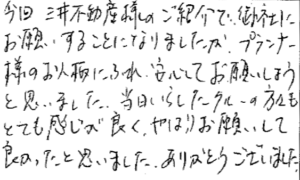 今回 三井不動産様のご紹介で、御社に
お願いすることになりましたが、プランナー
様のお人柄にふれ、安心してお願いしよう
と思いました。当日いらしたクルーの方も
とても感じが良く、やはりお願いして
良かったと思いました。ありがとうございました。